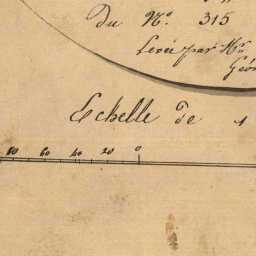 Du N.º 315
Levée par Mr.
Géom
Echelle de 1
80 60 40 20 0